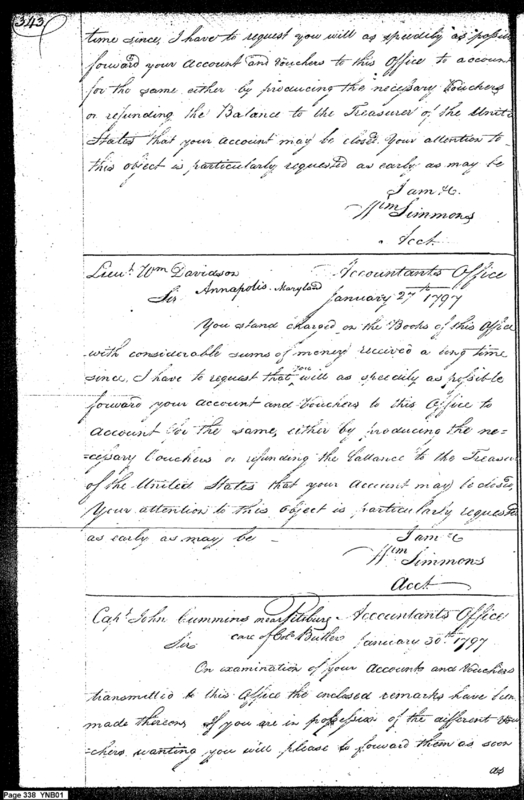 343
time since, I have to request you will as speedily as possible
forward your Account and Vouchers to this Office to account
for the same either by producing the necessary Vouchers
or refunding the Balance to the Treasurer of the United
States that your account may be closed. Your attention to
this object is particularly requested as early as may be
I am &c.
Wm Simmons
Acct.
Lieut. Wm Davidson Accountants Office
Annapolis. Maryland
Sir January 27th 1797
You stand charged on the Books of this Office
with considerable sums of money received a long time
since, I have to request that you will as speedily as possible
forward your account and Vouchers to this Office to
Account for the same, either by producing the ne=
=cessary Vouchers or refunding the Ballance to the Treasur
of the United States that your Account may be closed,
Your attention to this object is particularly requested
as early as may be — I am &
Wm Simmons
Acct
Capt. John Cummins near Pitsburg Accountants Office
care of Col. Butler
Sir January 30th 1797
On examination of your Accounts and Vouchers
transmitted to this Office the enclosed remarks have been
made thereon, If you are in possession of the different Vou
=chers wanting you will please to forward them as soon
as
Page 338 YNB01